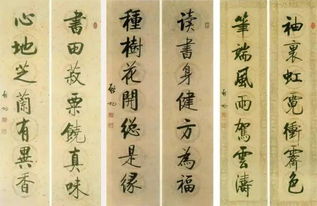 袖裏虹霓衝霽色
筆端風雨駕雲濤
读書身健方為福
種樹花開總是緣
啟功
書田菽粟饒真味
心地芝蘭有異香